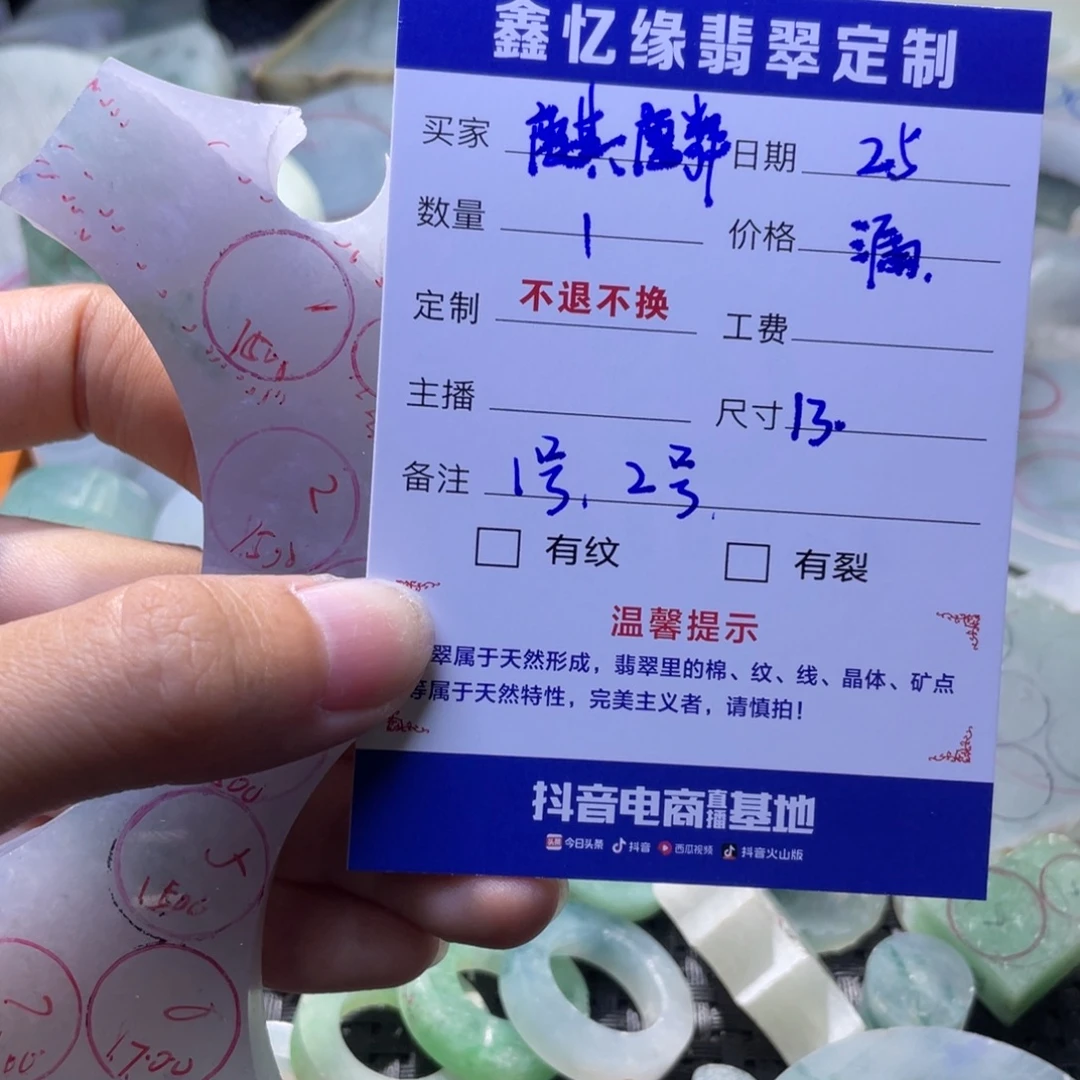 鑫忆缘翡翠定制
买家 麒麟 日期 25
数量 1 价格 漏.
定制 不退不换 工费
主播 尺寸 13.
备注 1号. 2号.
有纹 有裂
温馨提示
翠属于天然形成，翡翠里的棉、纹、线、晶体、矿点
等属于天然特性，完美主义者，请慎拍！
抖音电商直播基地
头条 今日头条 抖音 西瓜视频 抖音火山版
1
2
1500
1700